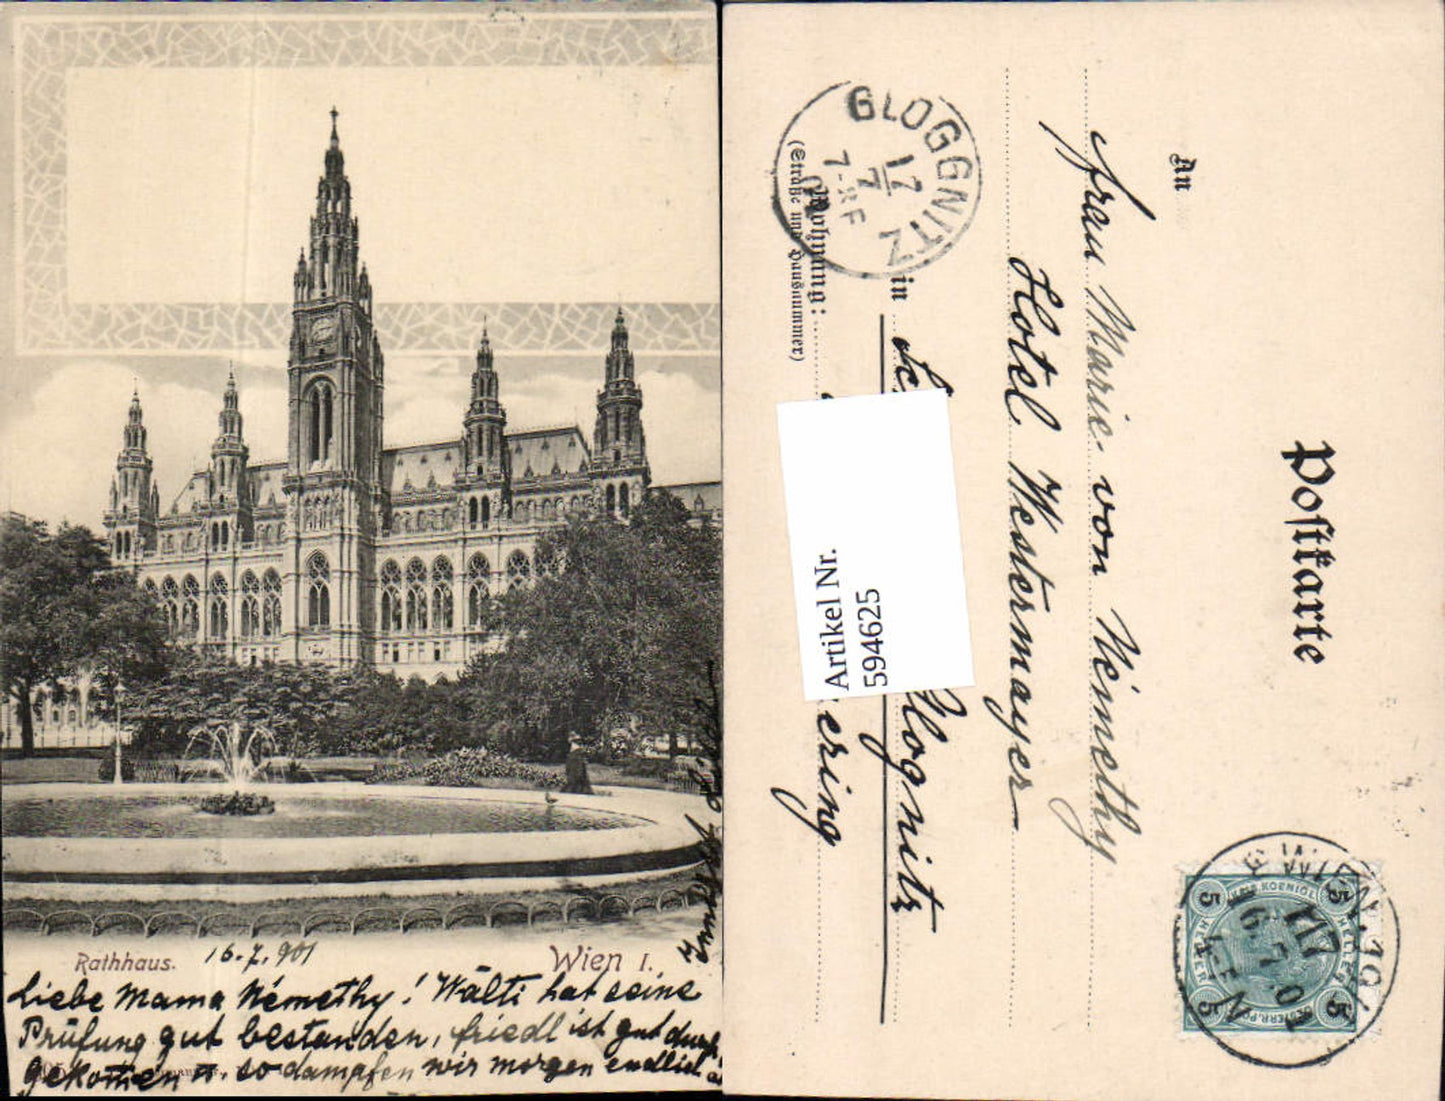 Rathhaus.
16.7.901
Wien I.
Liebe Mama Némethy! Wälti hat seine
Prüfung gut bestanden, friedl ist gut durch
gekomen u. so dampfen wir morgen endlich
Postkarte
An
Frau Marie von Némethy
Hotel Westermayer
in
Glognitz
Wohnung:
(Straße und Hausnummer)
ering
GLOGGNITZ
17
7
7-8F
WIEN
16.7.01
4-5N
5 5
5 5
HELLER
Artikel Nr.
594625